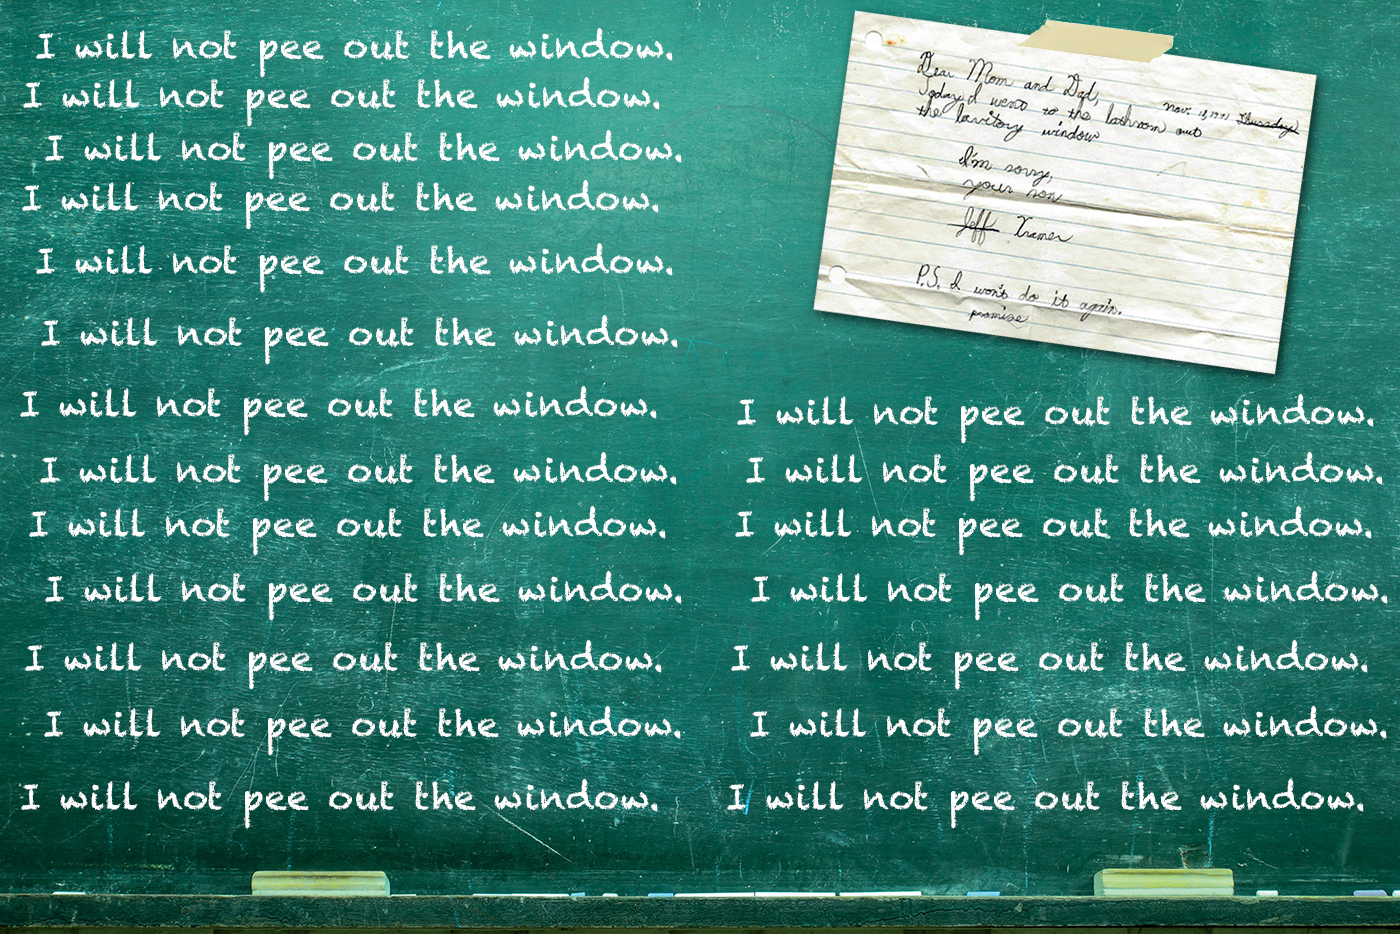 I will not pee out the window.
I will not pee out the window.
I will not pee out the window.
I will not pee out the window.
I will not pee out the window.
I will not pee out the window.
I will not pee out the window.
I will not pee out the window.
I will not pee out the window.
I will not pee out the window.
I will not pee out the window.
I will not pee out the window.
I will not pee out the window.
Dear Mom and Dad,
Nov. Thursday
Today I went to the bathroom out
the lavitory window
I'm sorry,
your son
Jeff Kramer
P.S. I won't do it again.
promise
I will not pee out the window.
I will not pee out the window.
I will not pee out the window.
I will not pee out the window.
I will not pee out the window.
I will not pee out the window.
I will not pee out the window.